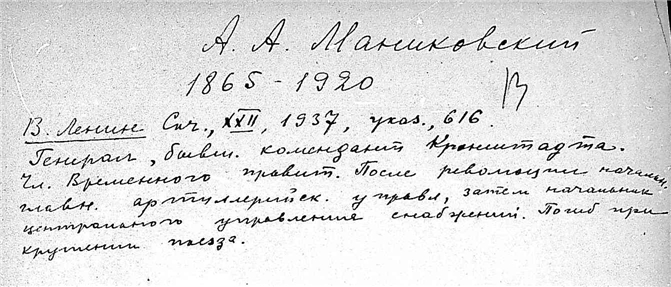 А. А. Маниковский
1865 - 1920
В
В. Ленин Соч., XXII, 1937, указ., 616.
Генерал, бывш. комендант Кронштадта.
Чл. Временного правит. После революции начальн.
главн. артиллерийск. управл, затем начальник
центрального управления снабжений. Погиб при
крушении поезда.